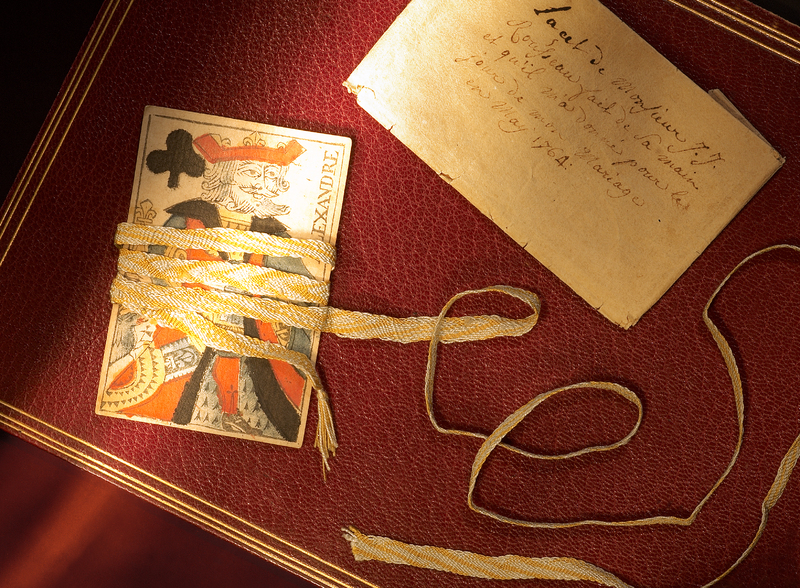 ALEXANDRE
Lacet de Monsieur J. J.
Rousseau fait de Sa main
et qu'il m'a donné pour le
jour de mon Mariage
en May 1764.